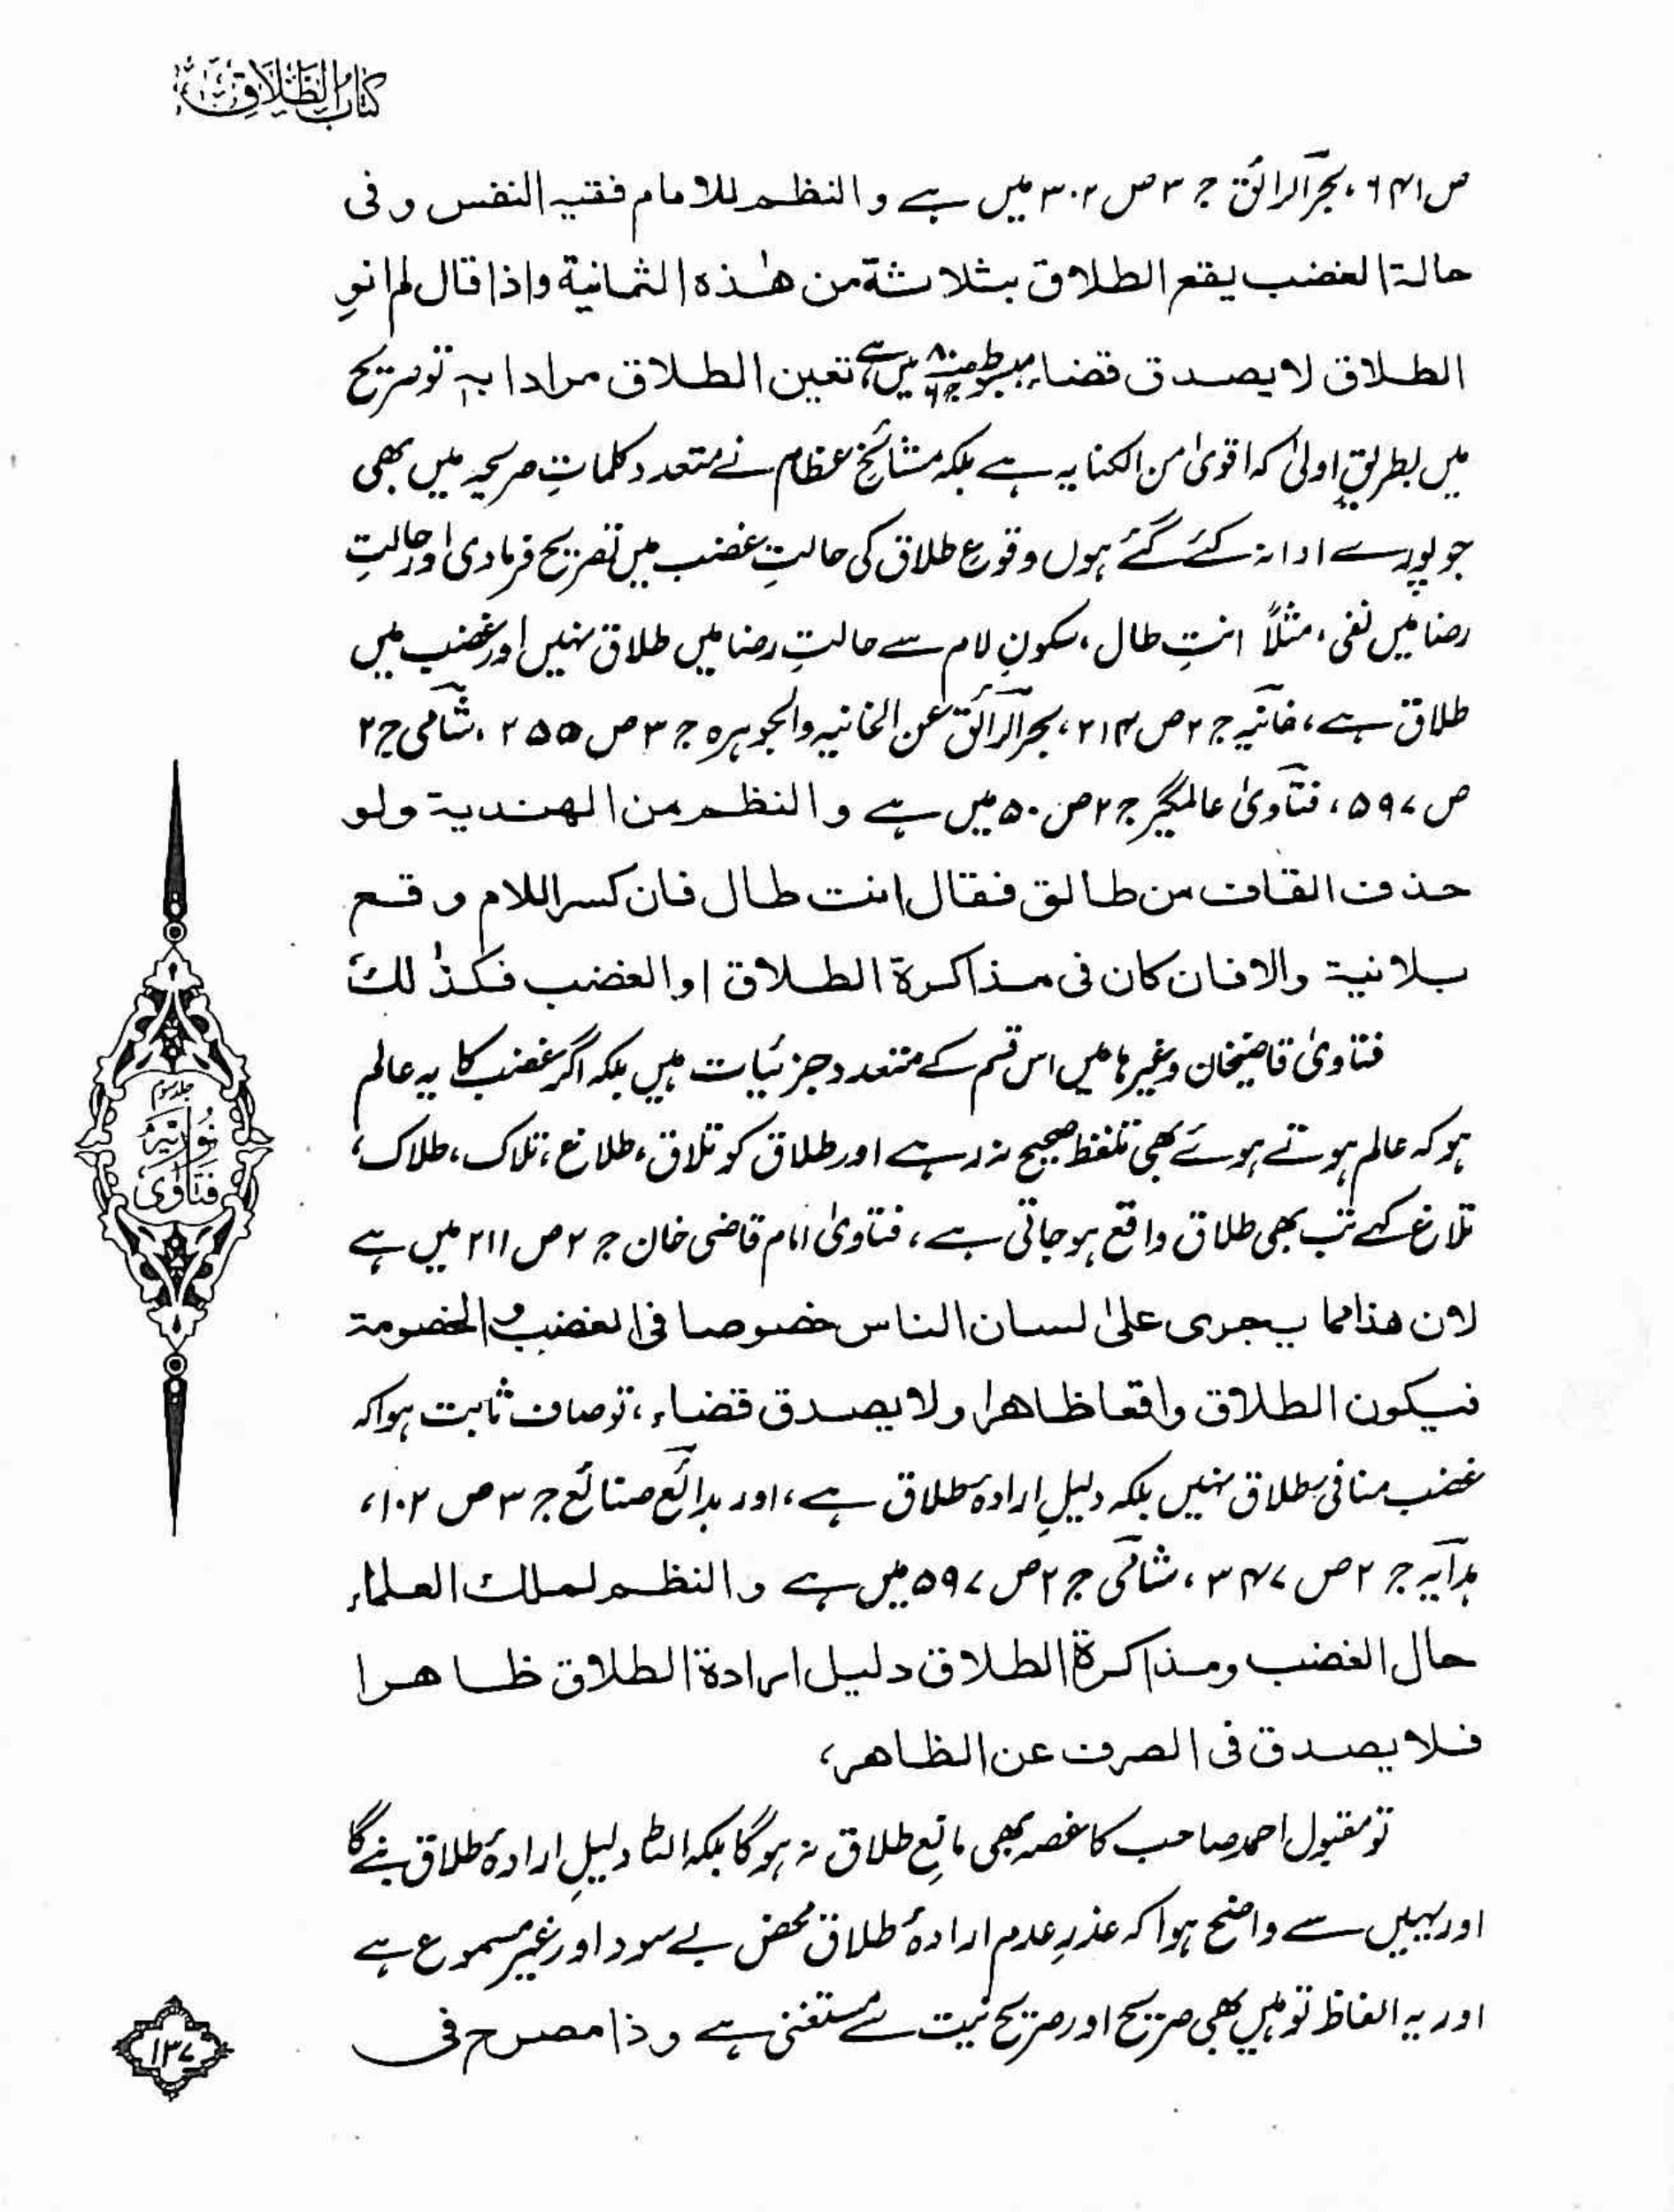 کتاب الطلاق
ص ۶۴۱، بحر الرائق ج ۳ ص ۳۰۲ میں ہے والنظم للامام فقیہ النفس وفی
حالۃ الغضب یقع الطلاق بثلاثۃ من ھٰذہ الثمانیۃ واذا قال لم انوِ
الطلاق لا یصدق قضاء، مبسوط ج۶ ص۸۰ میں ہے تعین الطلاق مرادا بہ تو صریح
میں بطریقِ اولیٰ کہ اقویٰ من الکنایہ ہے بلکہ مشائخِ عظام نے متعدد کلماتِ صریحہ میں بھی
جو پورے ادا نہ کئے گئے ہوں وقوعِ طلاق کی حالتِ غضب میں تصریح فرمادی اور حالتِ
رضا میں نفی، مثلاً انتِ طال، سکونِ لام سے حالتِ رضا میں طلاق نہیں اور غضب میں
طلاق ہے، خانیہ ج ۲ ص ۲۱۴، بحر الرائق عن الخانیہ والجوہرہ ج ۳ ص ۲۵۵، شامی ج ۲
ص ۵۹۷، فتاویٰ عالمگیر ج ۲ ص ۵۰ میں ہے والنظم من الھندیۃ ولو
حذف القاف من طالق فقال انت طال فان کسر اللام وقع
بلا نیۃ والا فان کان فی مذاکرۃ الطلاق او الغضب فکذٰلک
فتاویٰ قاضیخان وغیرہا میں اس قسم کے متعدد جزئیات ہیں بلکہ اگر غضب کا یہ عالم
ہو کہ عالم ہوتے ہوئے بھی تلفظ صحیح نہ رہے اور طلاق کو تلاق، طلاغ، تلاک، طلاک،
تلاغ کہے تب بھی طلاق واقع ہو جاتی ہے، فتاویٰ امام قاضی خان ج ۲ ص ۲۱۱ میں ہے
لان ھذا مما یجری علیٰ لسان الناس خصوصا فی الغضب والخصومۃ
فیکون الطلاق واقعا ظاھرا ولا یصدق قضاء، تو صاف ثابت ہوا کہ
غضب منافیٔ طلاق نہیں بلکہ دلیلِ ارادۂ طلاق ہے، اور بدائع صنائع ج ۳ ص ۱۰۲،
ہدایہ ج ۲ ص ۳۴۷، شامی ج ۲ ص ۵۹۷ میں ہے والنظم لملک العلماء
حال الغضب ومذاکرۃ الطلاق دلیل ارادۃ الطلاق ظاھرا
فلا یصدق فی الصرف عن الظاھر،
تو مقبول احمد صاحب کا غصہ بھی مانعِ طلاق نہ ہوگا بلکہ الٹا دلیلِ ارادۂ طلاق بنے گا
اور یہیں سے واضح ہوا کہ عذرِ عدمِ ارادۂ طلاق محض بے سود اور غیر مسموع ہے
اور یہ الفاظ تو ہیں بھی صریح اور صریح نیت سے مستغنی ہے وذا مصرح فی
جلد سوم
نوریہ
فتاویٰ
۱۳۷